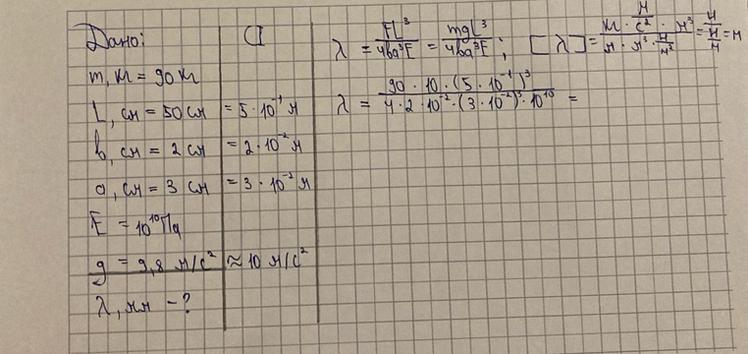 Дано:
СИ
m, кг = 90 кг
L, см = 50 см = 5 · 10⁻¹ м
b, см = 2 см = 2 · 10⁻² м
a, см = 3 см = 3 · 10⁻² м
E = 10¹⁰ Па
g = 9,8 м/с² ≈ 10 м/с²
λ, мм - ?
λ = FL³/4ba³E = mgL³/4ba³E ; [λ] = кг · м/с² · м³ / м · м³ · н/м² = н / н/м = м
λ = 90 · 10 · (5 · 10⁻¹)³ / 4 · 2 · 10⁻² · (3 · 10⁻²)³ · 10¹⁰ =